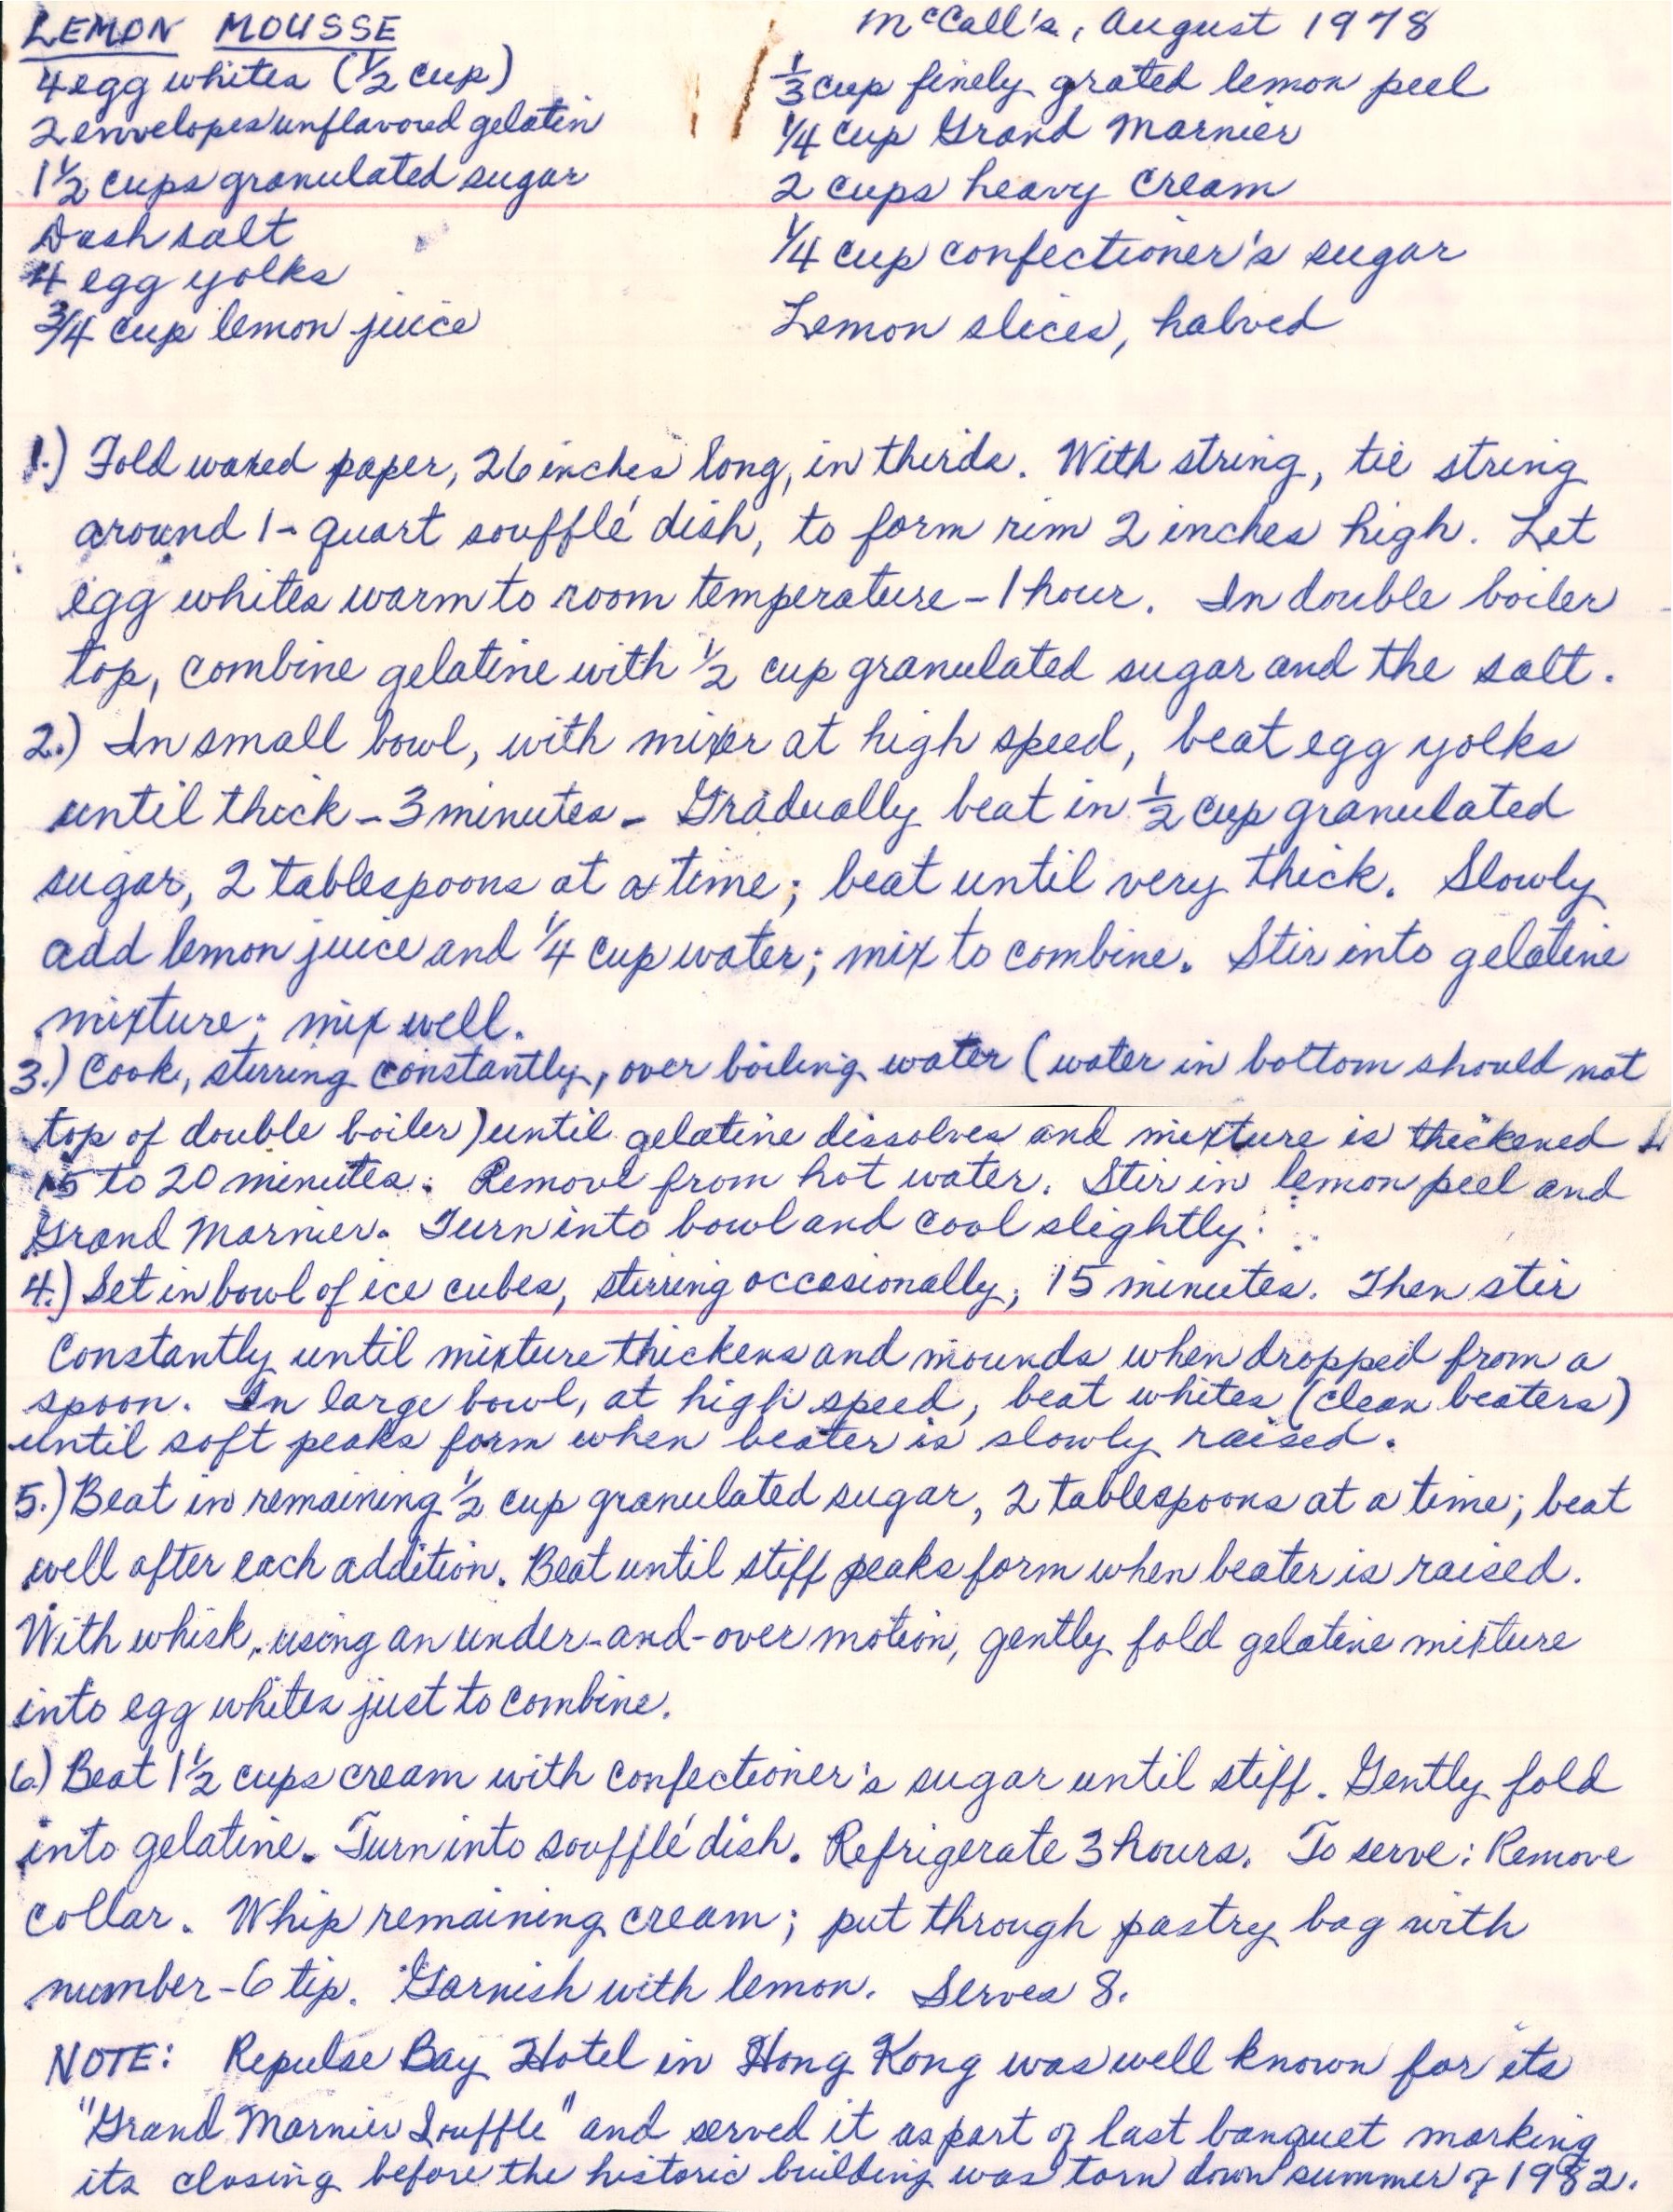 LEMON MOUSSE
McCall's, August 1978
4 egg whites (1/2 cup)
2 envelopes unflavored gelatin
1 1/2 cups granulated sugar
Dash salt
4 egg yolks
3/4 cup lemon juice
1/3 cup finely grated lemon peel
1/4 cup Grand Marnier
2 cups heavy cream
1/4 cup confectioner's sugar
Lemon slices, halved
1.) Fold waxed paper, 26 inches long, in thirds. With string, tie string
around 1-quart soufflé dish, to form rim 2 inches high. Let
egg whites warm to room temperature - 1 hour. In double boiler
top, combine gelatine with 1/2 cup granulated sugar and the salt.
2.) In small bowl, with mixer at high speed, beat egg yolks
until thick - 3 minutes - Gradually beat in 1/2 cup granulated
sugar, 2 tablespoons at a time; beat until very thick. Slowly
add lemon juice and 1/4 cup water; mix to combine. Stir into gelatine
mixture; mix well.
3.) Cook, stirring constantly, over boiling water (water in bottom should not
top of double boiler) until gelatine dissolves and mixture is thickened
15 to 20 minutes. Remove from hot water. Stir in lemon peel and
Grand Marnier. Turn into bowl and cool slightly.
4.) Set in bowl of ice cubes, stirring occasionally, 15 minutes. Then stir
constantly until mixture thickens and mounds when dropped from a
spoon. In large bowl, at high speed, beat whites (clean beaters)
until soft peaks form when beater is slowly raised.
5.) Beat in remaining 1/2 cup granulated sugar, 2 tablespoons at a time; beat
well after each addition. Beat until stiff peaks form when beater is raised.
With whisk, using an under-and-over motion, gently fold gelatine mixture
into egg whites just to combine.
6.) Beat 1 1/2 cups cream with confectioner's sugar until stiff. Gently fold
into gelatine. Turn into soufflé dish. Refrigerate 3 hours. To serve: Remove
collar. Whip remaining cream; put through pastry bag with
number-6 tip. Garnish with lemon. Serves 8.
NOTE: Repulse Bay Hotel in Hong Kong was well known for its
"Grand Marnier Souffle" and served it as part of last banquet marking
its closing before the historic building was torn down summer of 1982.